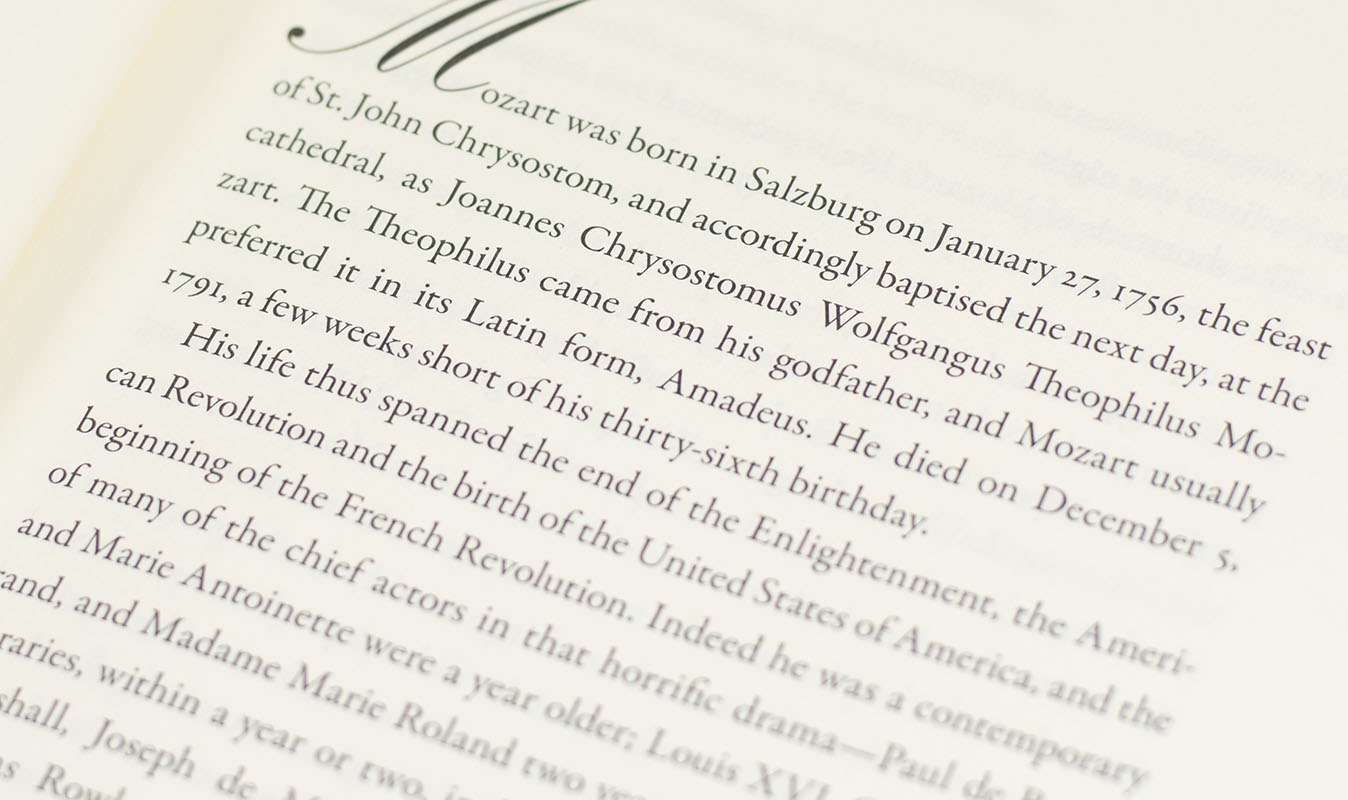 Mozart was born in Salzburg on January 27, 1756, the feast
of St. John Chrysostom, and accordingly baptised the next day, at the
cathedral, as Joannes Chrysostomus Wolfgangus Theophilus Mo-
zart. The Theophilus came from his godfather, and Mozart usually
preferred it in its Latin form, Amadeus. He died on December 5,
1791, a few weeks short of his thirty-sixth birthday.
His life thus spanned the end of the Enlightenment, the Ameri-
can Revolution and the birth of the United States of America, and the
beginning of the French Revolution. Indeed he was a contemporary
of many of the chief actors in that horrific drama—Paul de
and Marie Antoinette were a year older; Louis XVI
and, and Madame Marie Roland two
raries, within a year or two,
shall, Joseph de